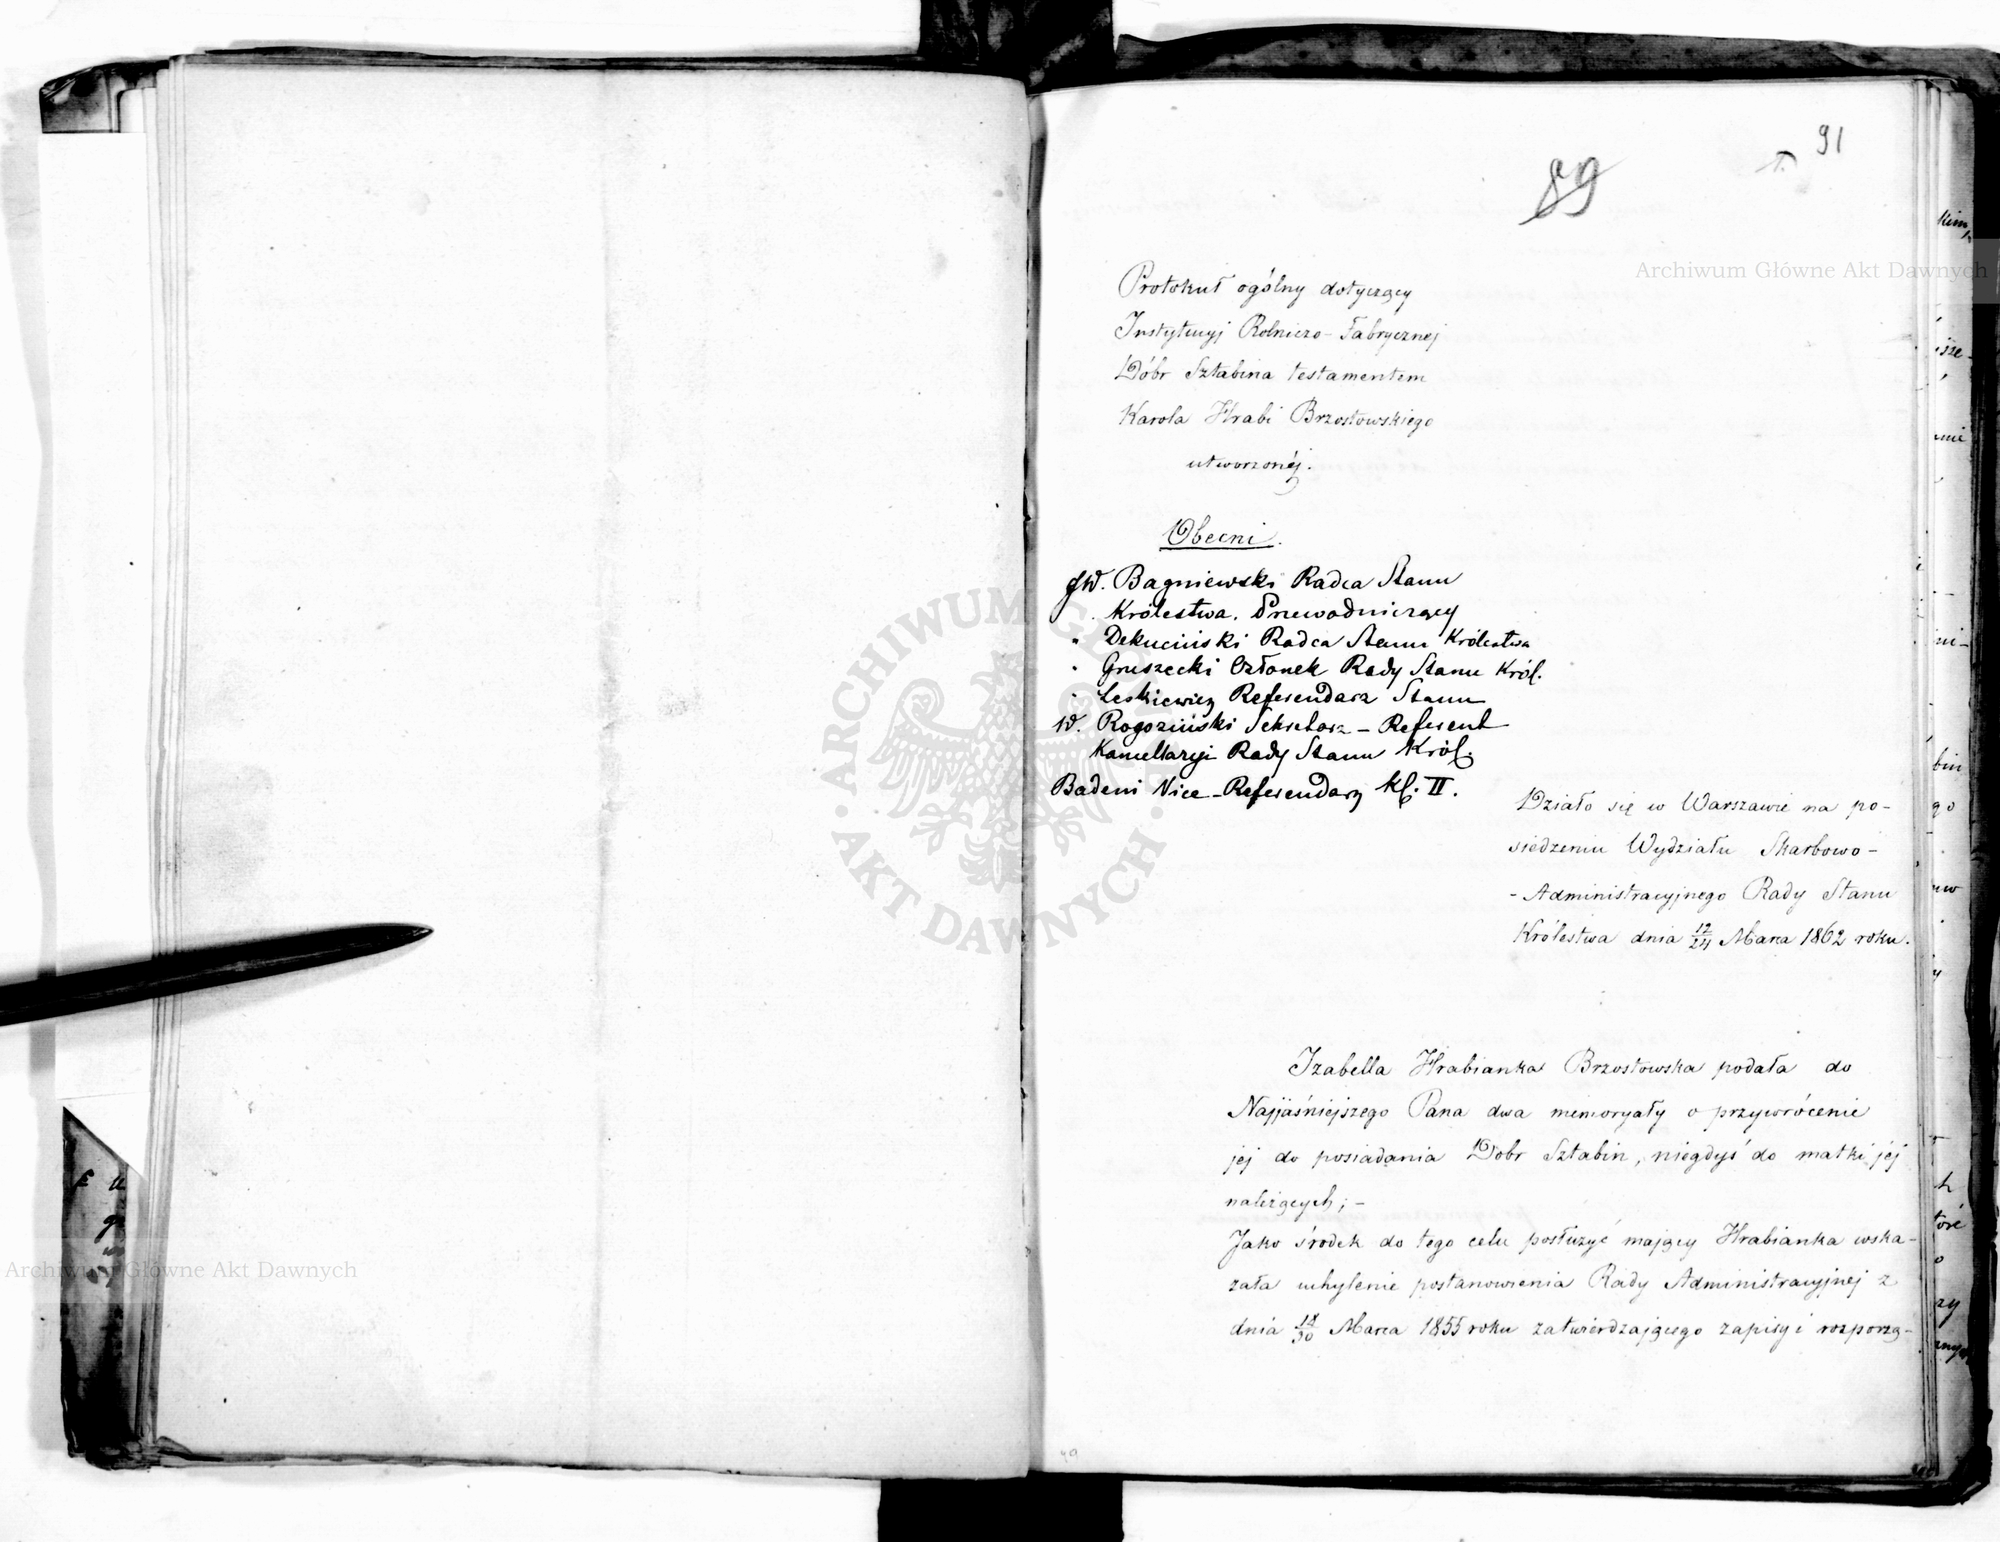 91
89
Protokuł ogólny dotyczący
Instytucyj Rolniczo-Fabrycznej
Dóbr Sztabina testamentem
Karola Hrabi Brzostowskiego
utworzonéj.
Obecni.
JW. Bagniewski Radca Stanu
Królestwa. Przewodniczący
" Dekuciński Radca Stanu Królestwa
" Gruszecki Członek Rady Stanu Król.
" Leskiewicz Referendarz Stanu
W. Rogoziński Sekretarz-Referent
Kancellaryi Rady Stanu Król.
Badeni Vice-Referendarz Kl. II.
Działo się w Warszawie na po-
siedzeniu Wydziału Skarbowo-
-Administracyjnego Rady Stanu
Królestwa dnia 12/24 Marca 1862 roku.
Izabella Hrabianka Brzostowska podała do
Najjaśniejszego Pana dwa memoryały o przywrócenie
jej do posiadania Dobr Sztabin, niegdyś do matki jéj
należących; -
Jako środek do tego celu posłużyć mający Hrabianka wska-
zała uchylenie postanowienia Rady Administracyjnej z
dnia 18/30 Marca 1855 roku zatwierdzającego zapisy i rozporzą-
49
Archiwum Główne Akt Dawnych
Archiwum Główne Akt Dawnych
ARCHIWUM GŁÓWNE · AKT DAWNYCH ·